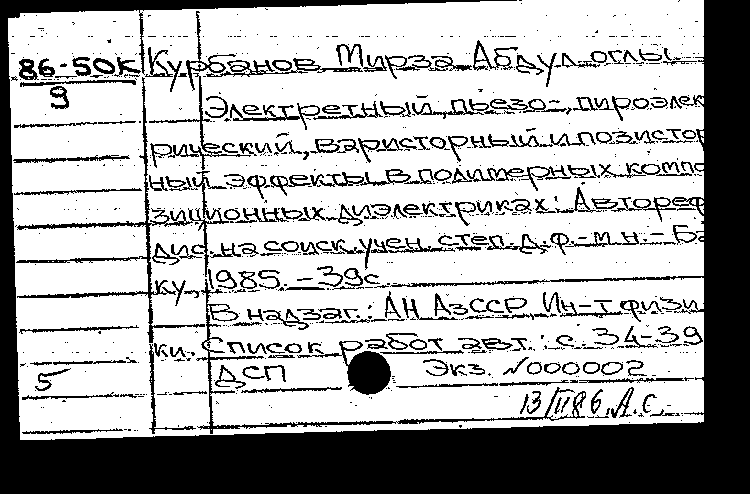 86-50К Курбанов Мирза Абдул оглы
9
Электретный, пьезо-, пироэлек
рический, варисторный и позистор
ный эффекты в полимерных компо
зиционных диэлектриках: Автореф
дис. на соиск. учен. степ. д.ф.-м.н. - Ба
ку, 1985. - 39с.
В надзаг.: АН АзССР Ин-т физи
ки. Список работ авт.: с. 34-39
5 ДСП Экз. №000002
13/III86. А.С.